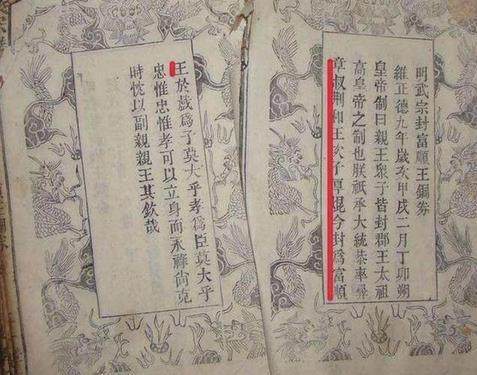 明武宗封富順王券
維正德九年歲次甲戌二月丁卯朔
皇帝制曰親王衆子皆封郡王太祖
高皇帝之制也朕祇承大統恭率彝
章叔荆和王次子厚焜今封爲富順
王於戲爲子莫大乎孝爲臣莫大乎
忠惟忠惟孝可以立身而永尚克
時忱以副親親王其欽哉